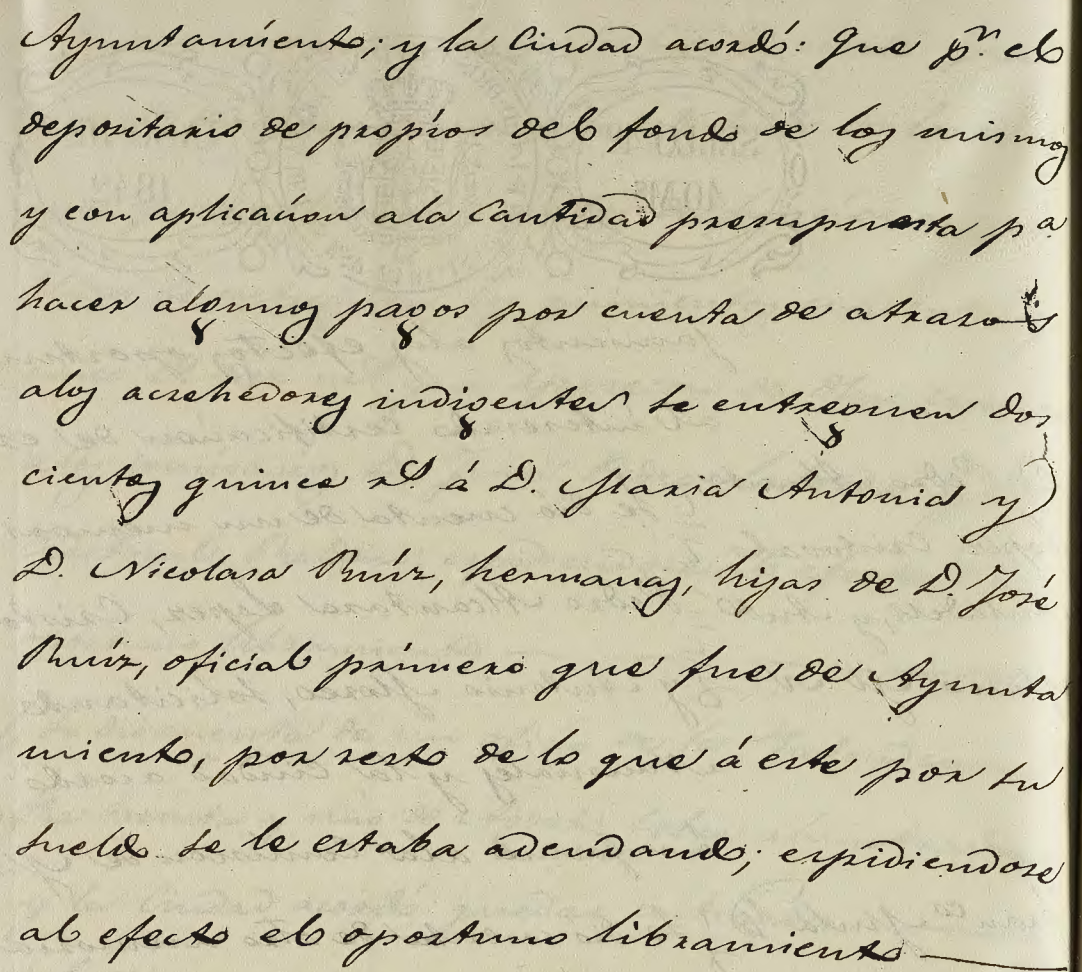 Ayuntamiento; y la Ciudad acordó: Que pr. el
depositario de propios del fondo de los mismos
y con aplicacion ala Cantidad presupuesta pa
hacer algunos pagos por cuenta de atrasos
alos acrehedores indigentes se entreguen dos
cientos quince rs. á D. Maria Antonia y
D. Nicolasa Ruíz, hermanas, hijas de D. José
Ruíz, oficial primero que fue de Ayunta
miento, por resto de lo que á este por su
sueldo se le estaba adeudando; espidiendose
al efecto el oportuno libramiento